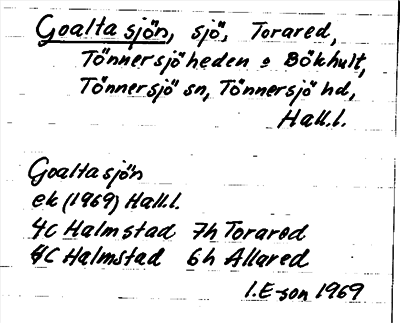 Goaltasjön, sjö, Torared,
Tönnersjöheden o Bökhult,
Tönnersjö sn, Tönnersjö hd,
Hall.l.
Goaltasjön
ek (1969) Hall.l.
4C Halmstad 7h Torared
4C Halmstad 6h Allared
I.E-son 1969